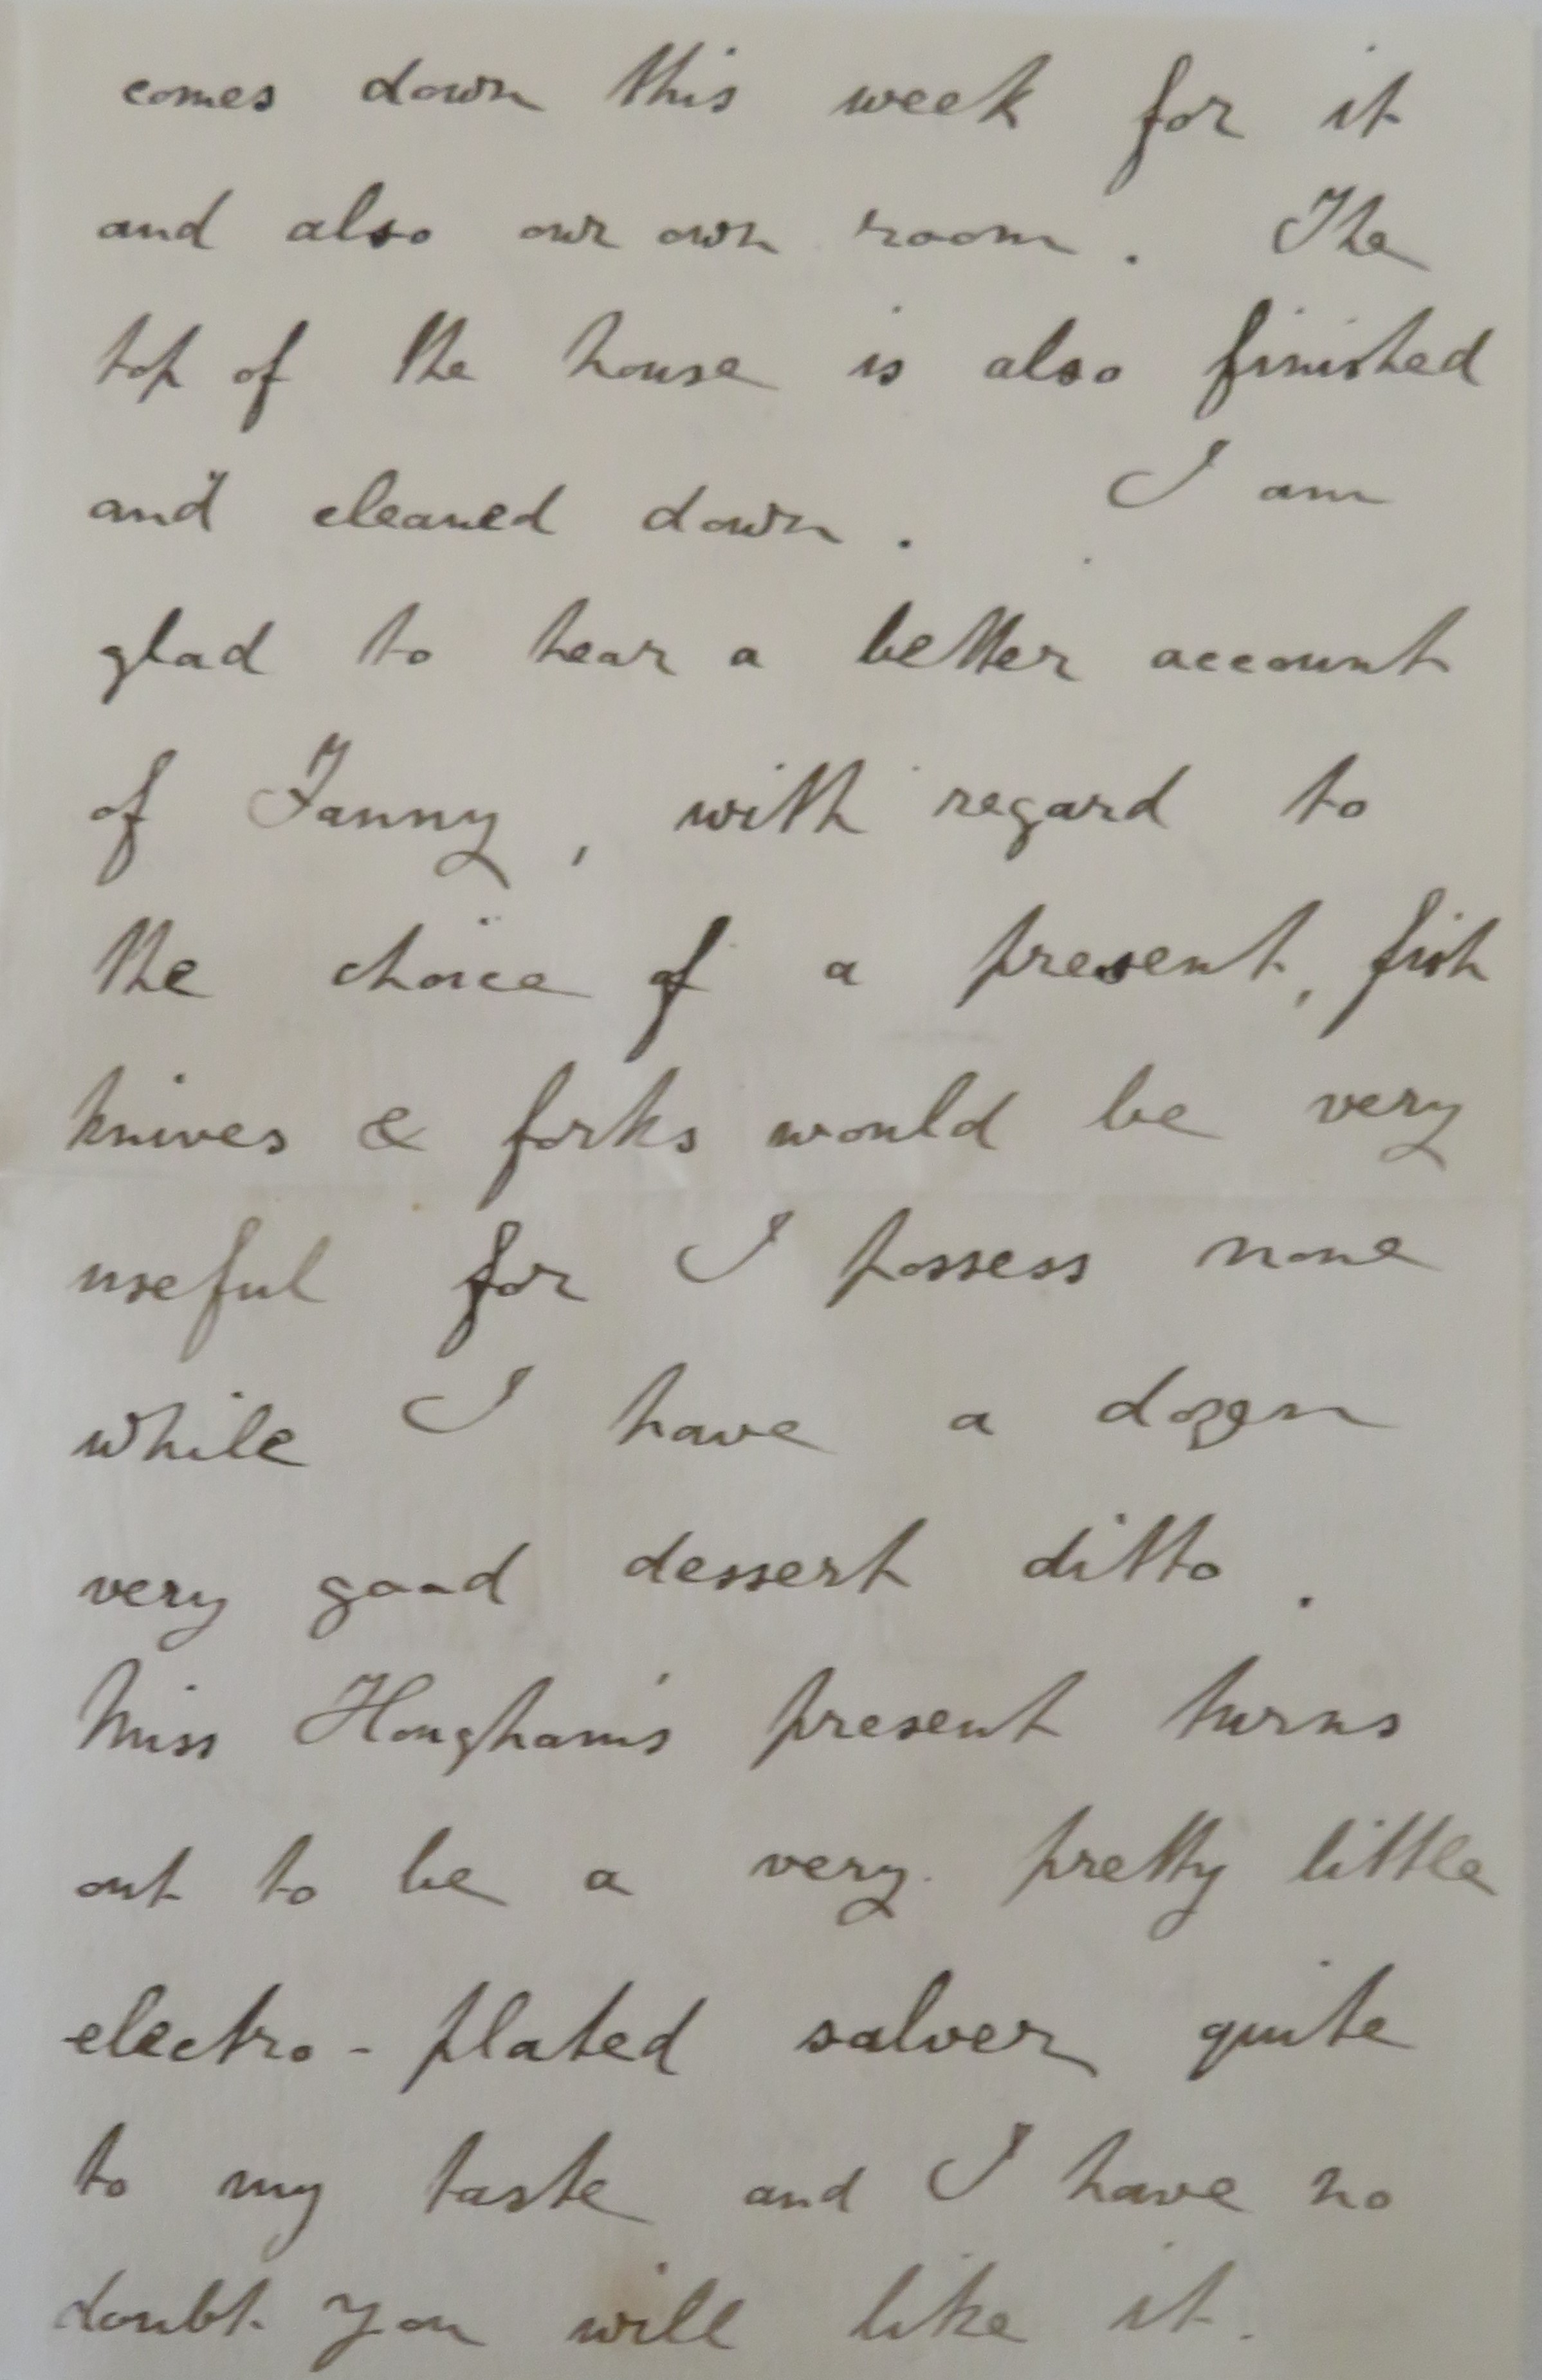 comes down this week for it
and also our own room. The
top of the house is also finished
and cleaned down. I am
glad to hear a better account
of Fanny, with regard to
the choice of a present, fish
knives & forks would be very
useful for I possess none
while I have a dozen
very good dessert ditto.
Miss Hougham's present turns
out to be a very pretty little
electro-plated salver quite
to my taste and I have no
doubt you will like it.